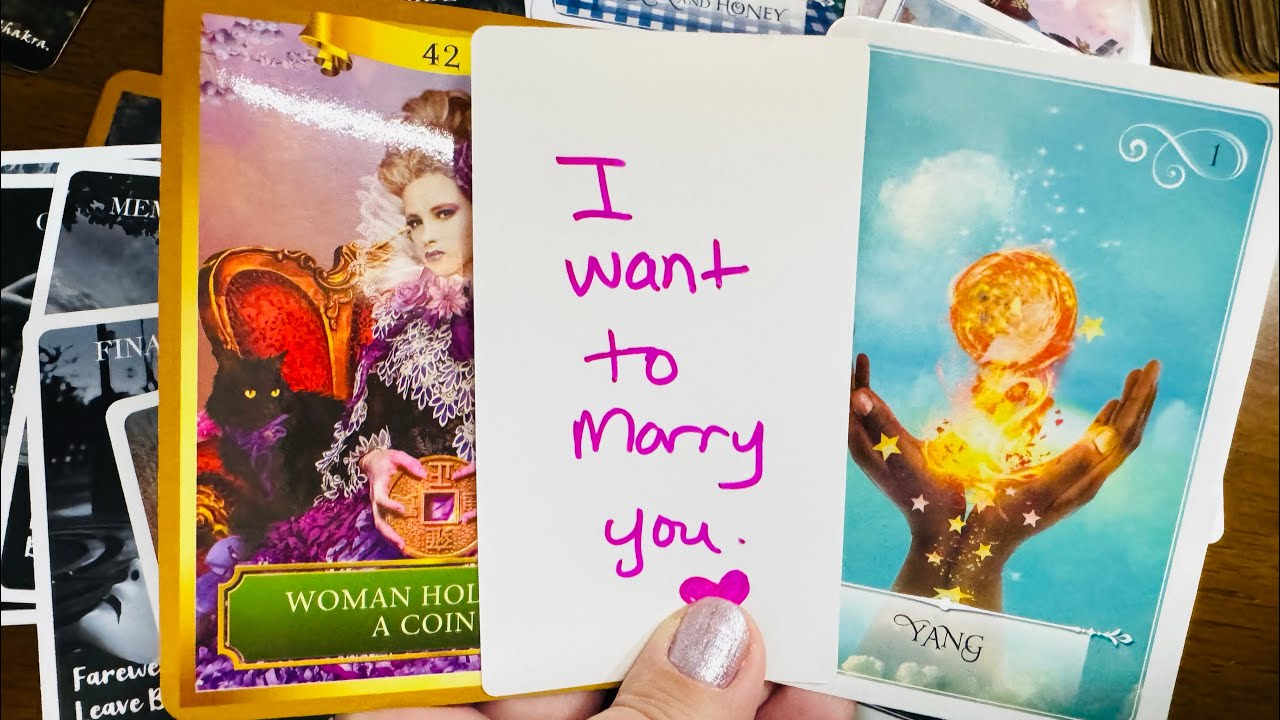 chakra.
AND HONEY
42
1
I
want
to
Marry
you.
WOMAN HOL
A COIN
YANG
MEM
FINA
Farewe
Leave B